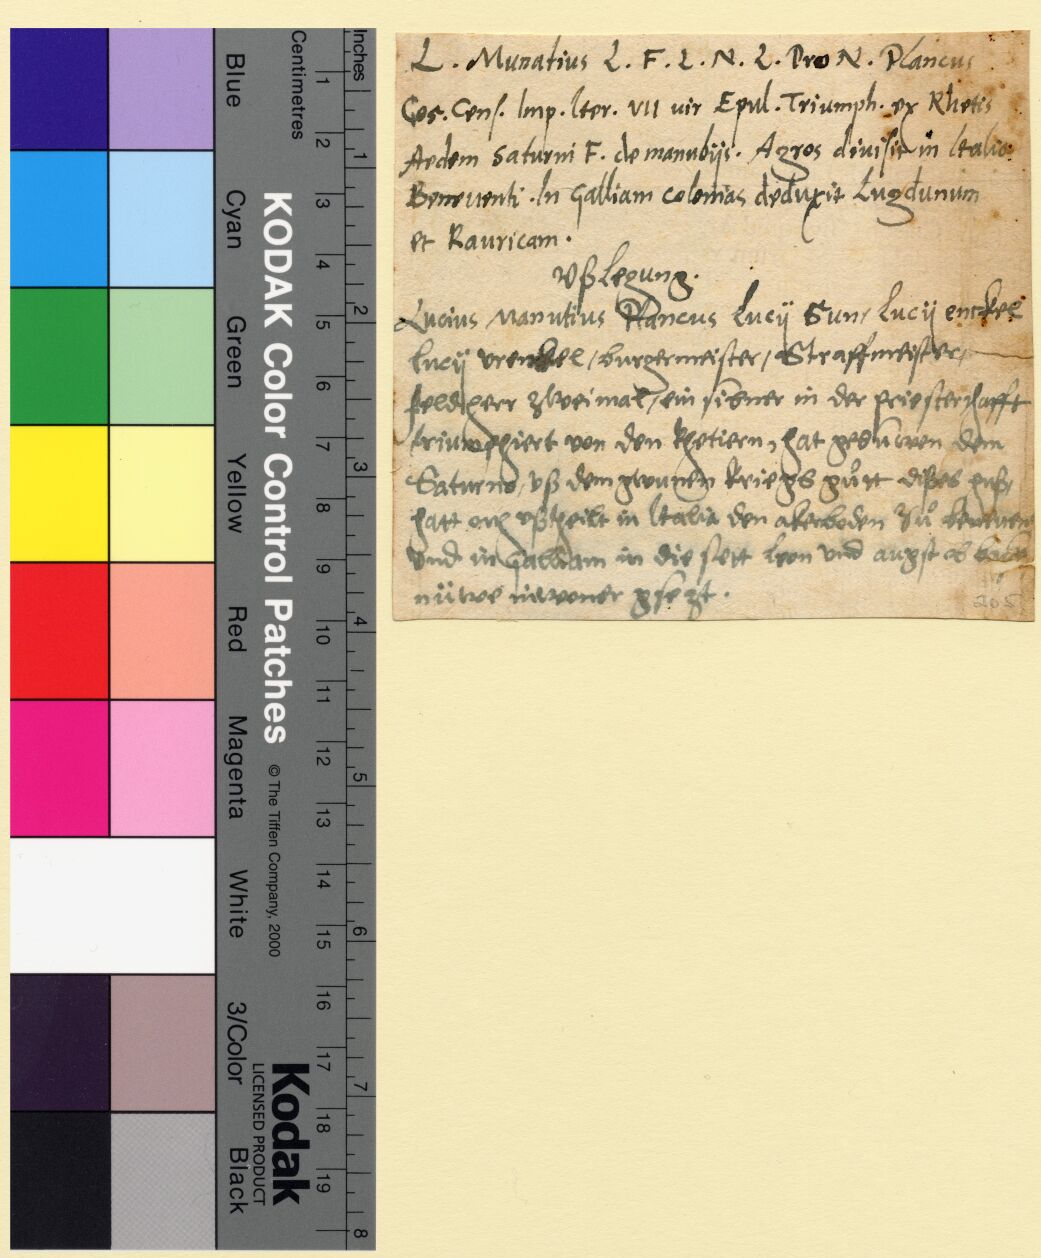 L. Munatius L. F. L. N. L. Pro N. Plancus
Cos. Cens. Imp. Iter. VII uir Epul. Triumph. ex Rhetis
Aedem Saturni F. de manubijs. Agros diuisit in Italia
Beneuenti. In Galliam colonias deduxit Lugdunum
et Rauricam.
Vßlegung.
Lucius Manutius Plancus Lucij Sun, Lucij enckel
Lucij vrenckel / burgermeister / Straffmeister,
feldherr zweimal / ein sibner in der priesterschafft
triumphiert von den Rhetiern, hat gebuwen dem
Saturno, vß dem gwunen kriegs gůtt dißes huß,
hatt och vßtheilt in Italia den akerboden zů
vnd in Galliam in die stett Leon vnd augst
nüwe inwoner gsetzt.
205
KODAK Color Control Patches
© The Tiffen Company, 2000
Kodak
LICENSED PRODUCT
Inches
1 2 3 4 5 6 7 8
Centimetres
1 2 3 4 5 6 7 8 9 10 11 12 13 14 15 16 17 18 19
Blue
Cyan
Green
Yellow
Red
Magenta
White
3/Color
Black